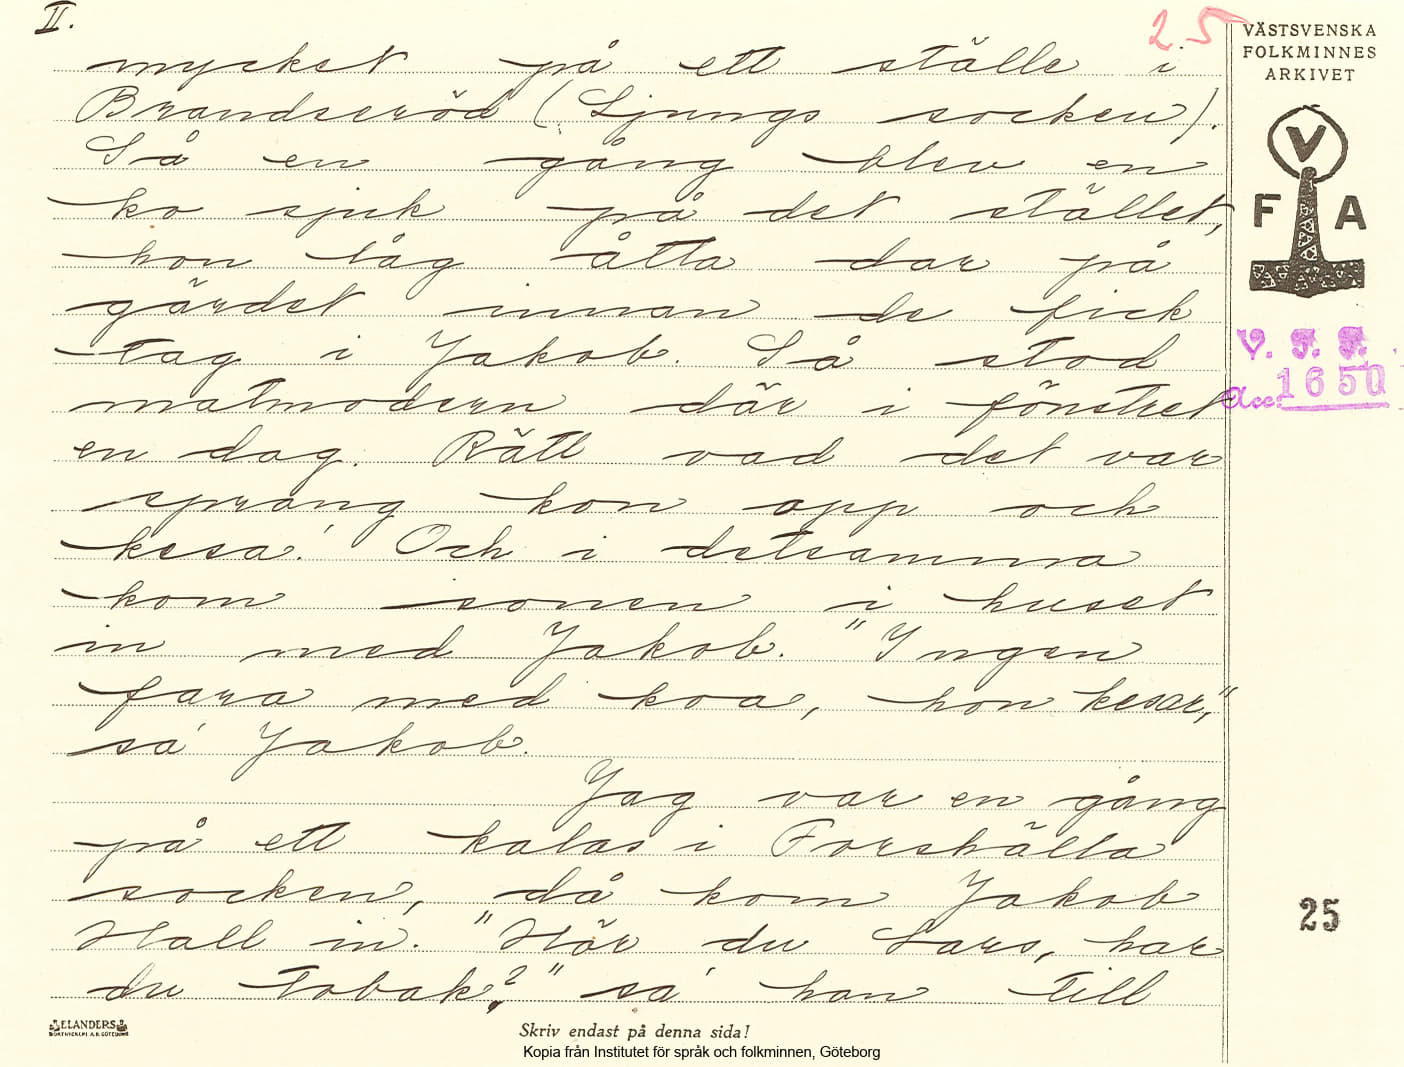 II.
25
VÄSTSVENSKA
FOLKMINNES
ARKIVET
V
F A
V. F. F.
Acc. 1650
mycket på ett ställe i
Brandseröd (Ljungs socken).
Så en gång blev en
ko sjuk på det stället,
hon låg åtta dar på
gärdet innan de fick
tag i Jakob. Så stod
matmodern där i fönstret
en dag. Rätt vad det var
sprang kon opp och
kesa! Och i detsamma
kom sonen i huset
in med Jakob. "Ingen
fara med koa, hon kesar,"
sa' Jakob.
Jag var en gång
på ett kalas i Forshälla
socken, då kom Jakob
Hall in. "Hör du Lars, har
du tobak?" sa' han till
25
ELANDERS
Skriv endast på denna sida!
Kopia från Institutet för språk och folkminnen, Göteborg